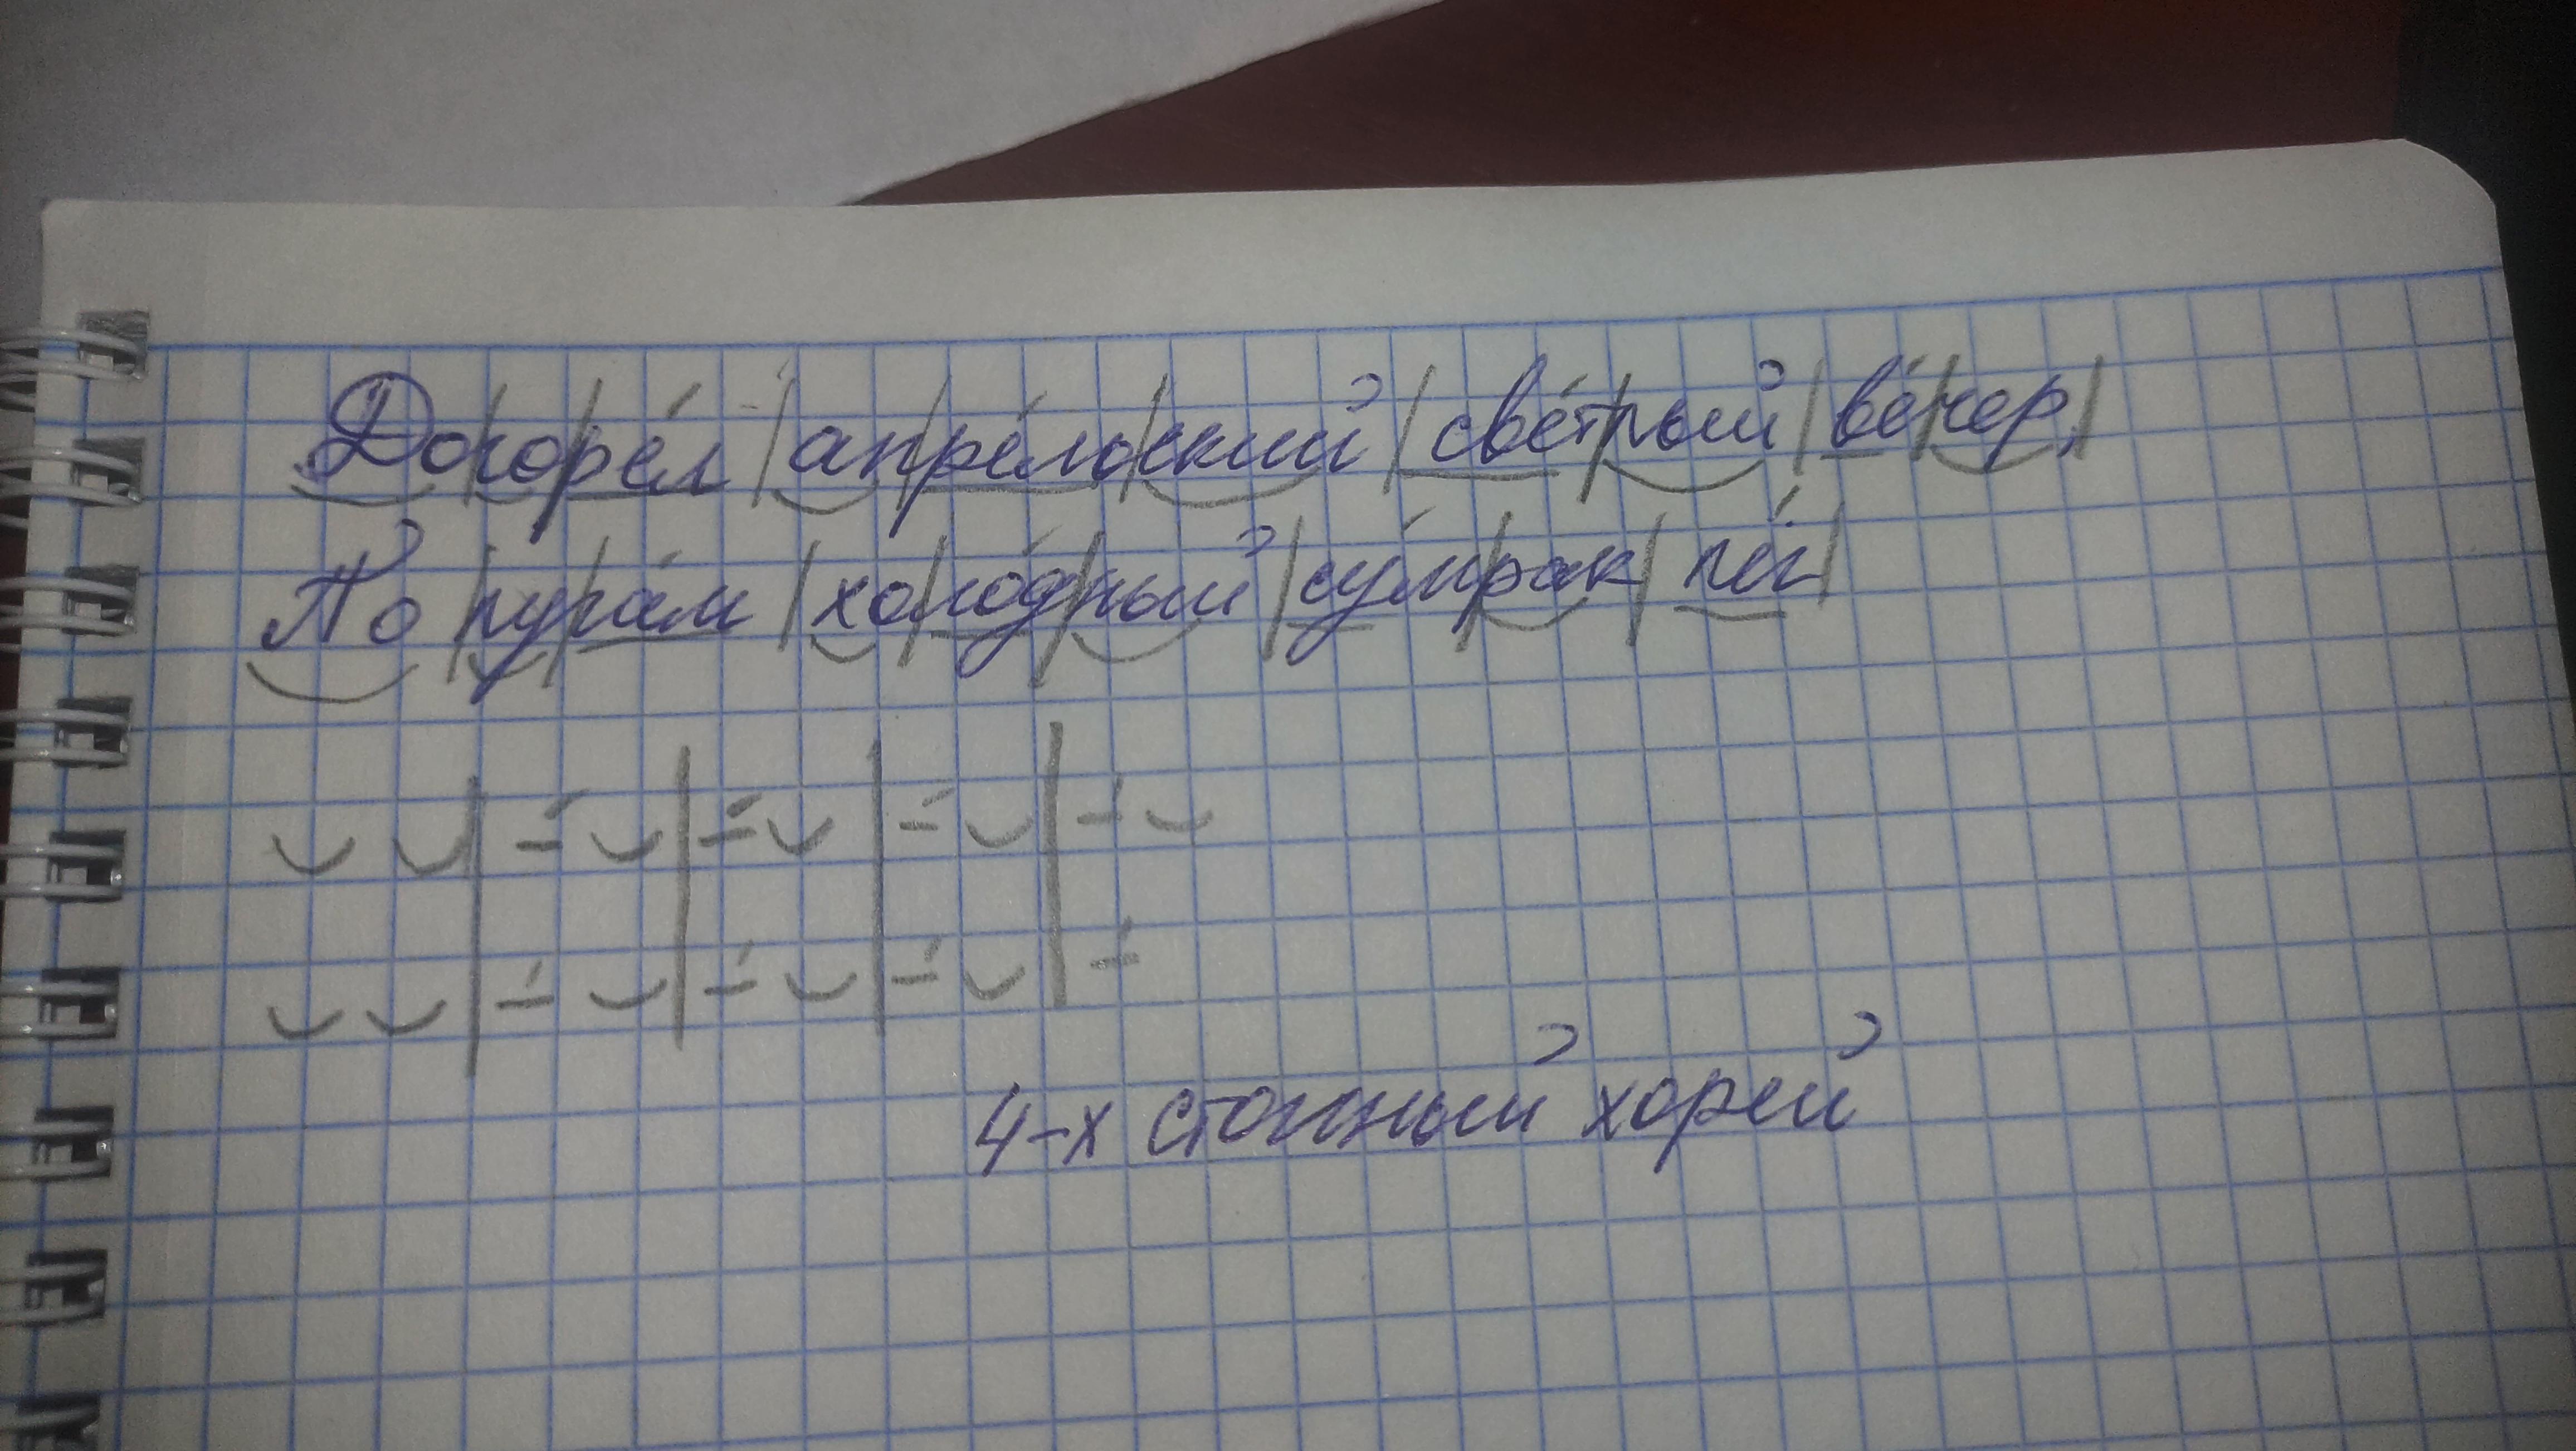 Догоре́л апре́льский све́тлый ве́чер,
По луга́м холо́дный су́мрак лёг
4-х стопный хорей